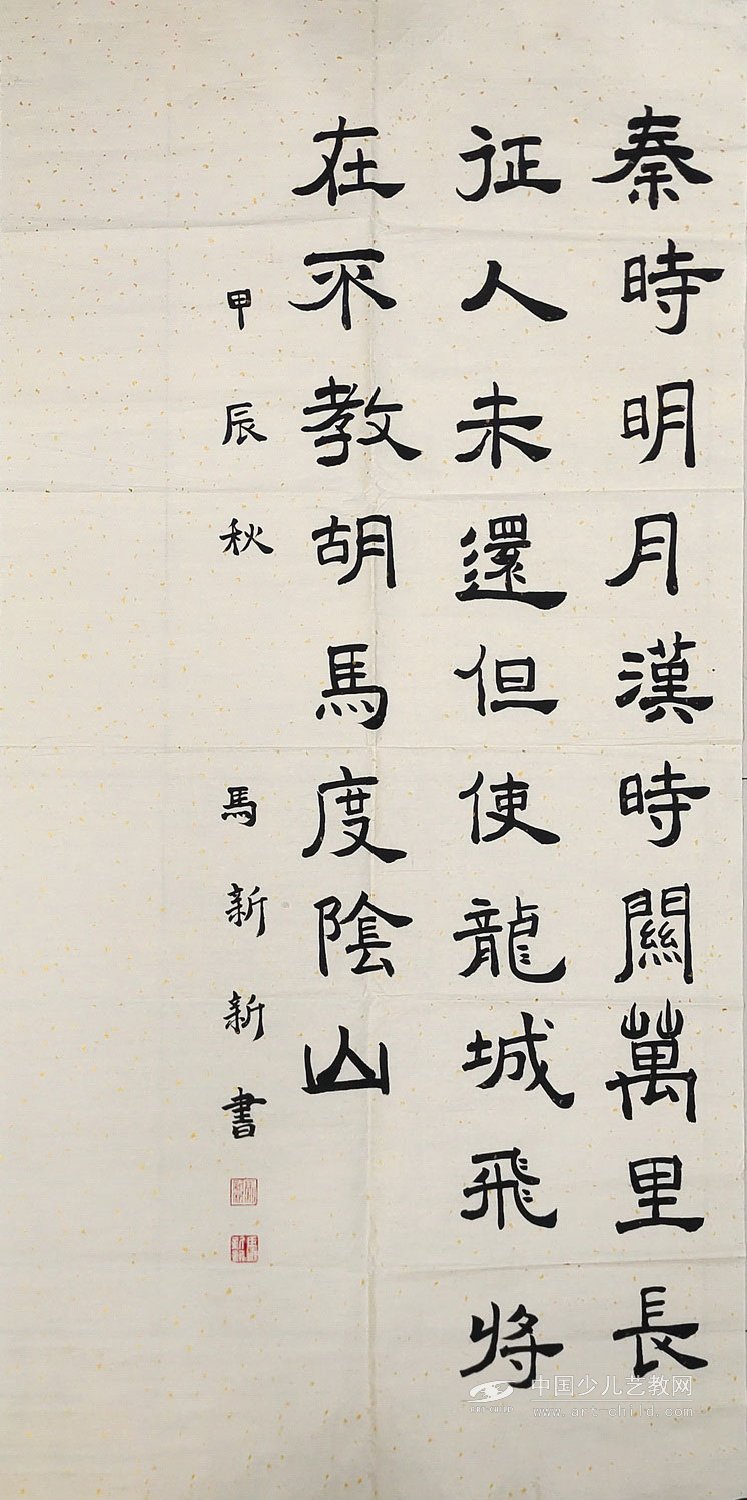 秦時明月漢時關萬里長
征人未還但使龍城飛將
在不教胡馬度陰山
甲辰秋 馬新新書
中国少儿艺教网
ART-CHILD www.art-child.com